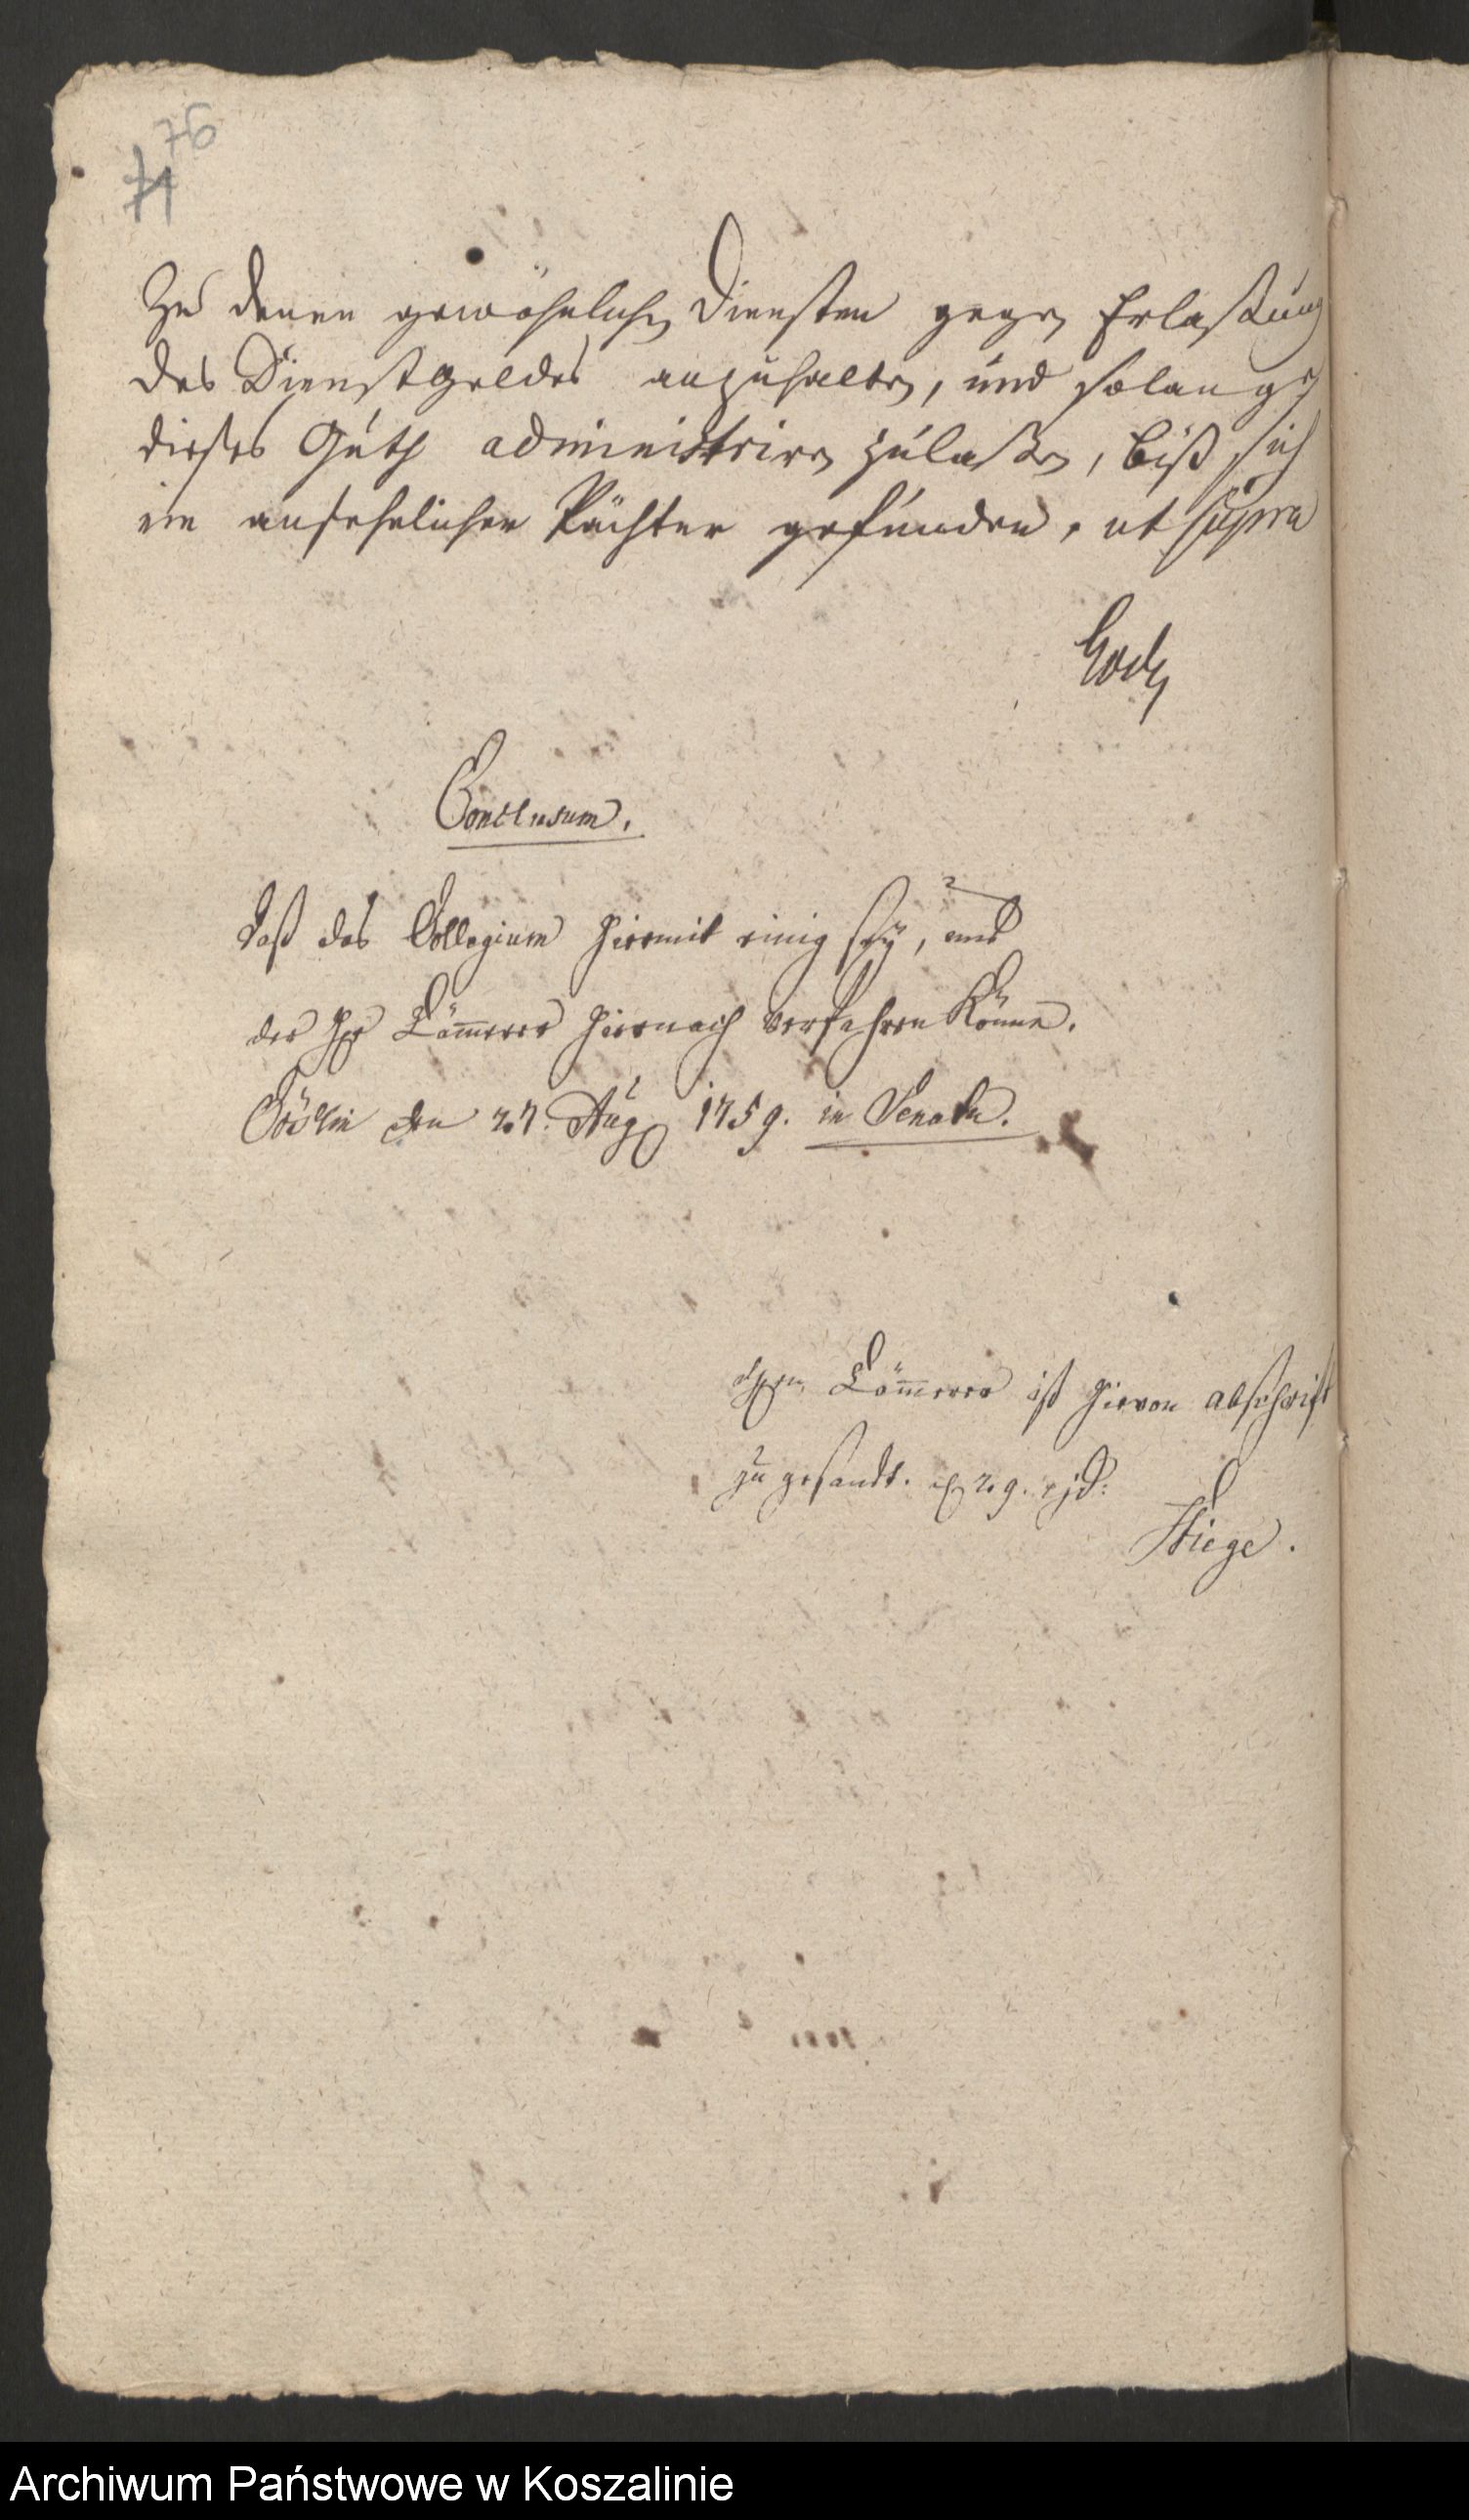 76
71
Zu denen gewöhnlichen Diensten gegen Erlaßung
des Dienstgeldes anzuhalten, und solange
dieses Guth administriren zulaßen, biß sich
ein ansehnlicher Pächter gefunden, ut supra
Conclusum.
daß das Collegium hiermit einig sey, und
der Hr Cämmerer hiernach verfahren könne.
Cöslin den 27. Aug 1759. in Senatu.
Hrn Cämmerer ist hievon abschrift
zu gesandt. 29. ejd:
Archiwum Państwowe w Koszalinie